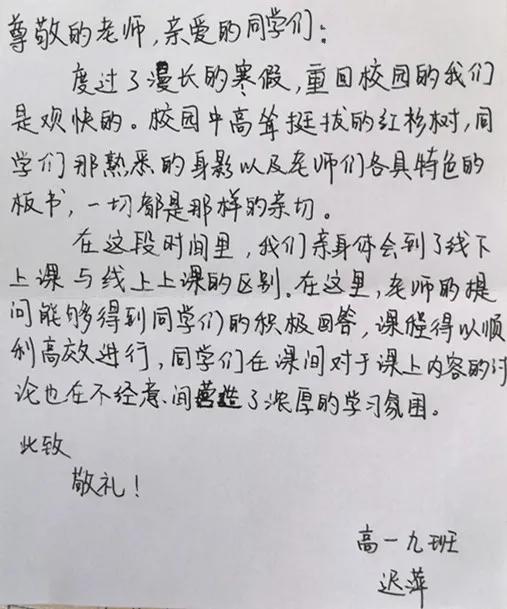 尊敬的老师,亲爱的同学们:
度过了漫长的寒假,重回校园的我们
是欢快的。校园中高耸挺拔的红杉树,同
学们那熟悉的身影以及老师们各具特色的
板书,一切都是那样的亲切。
在这段时间里,我们亲身体会到了线下
上课与线上上课的区别。在这里,老师的提
问能够得到同学们的积极回答,课程得以顺
利高效进行,同学们在课间对于课上内容的讨
论也在不经意间营造了浓厚的学习氛围。
此致
敬礼!
高一九班
迟萍